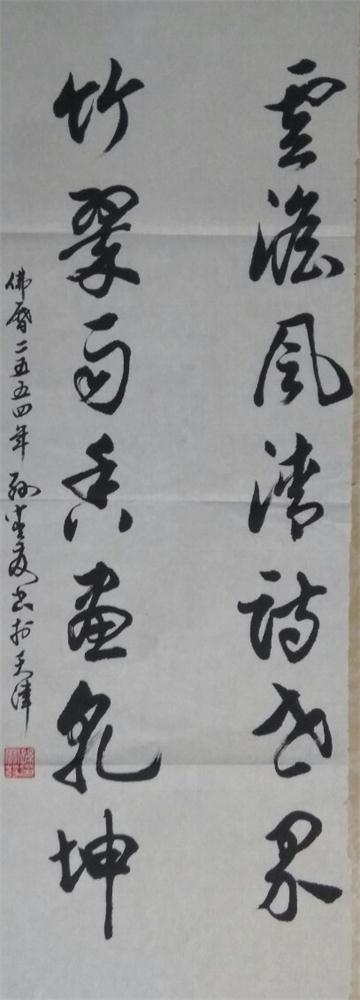 雲澹風清詩世界
竹翠雨香畫乾坤
佛曆二五五四年 孙書於天津